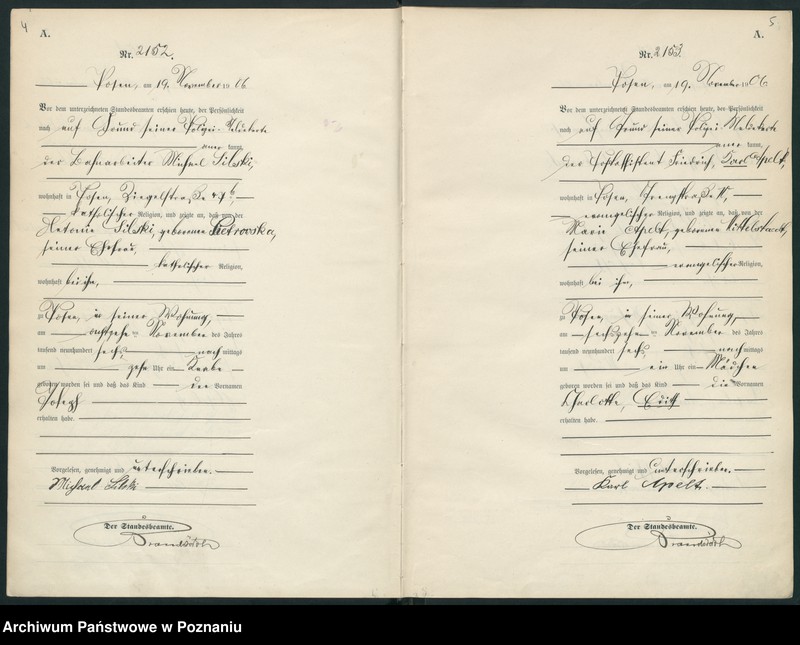 4
A.
Nr. 2152.
Posen, am 19. November 1906
Vor dem unterzeichneten Standesbeamten erschien heute, der Persönlichkeit
nach auf Grund seiner Polizei-Meldekarte
anerkannt,
der Bahnarbeiter Michael
wohnhaft in Posen,
katholischer Religion, und zeigte an, daß von der
geborenen
seiner Ehefrau,
katholischer Religion,
wohnhaft bei ihm,
zu Posen in seiner Wohnung,
am achtzehnten November des Jahres
tausend neunhundert sechs nachmittags
um zehn Uhr ein Knabe
geboren worden sei und daß das Kind den Vornamen
Joseph
erhalten habe.
Vorgelesen, genehmigt und unterschrieben.
Michael
Der Standesbeamte.
5
A.
Nr. 2153
Posen, am 19. November 1906
Vor dem unterzeichneten Standesbeamten erschien heute, der Persönlichkeit
nach auf Grund seiner Polizei-Meldekarte
anerkannt,
der Postassistent Friedrich, Karl Apelt,
wohnhaft in Posen,
evangelischer Religion, und zeigte an, daß von der
Marie Apelt, geborenen
seiner Ehefrau,
evangelischer Religion,
wohnhaft bei ihm,
zu Posen in seiner Wohnung,
am sechszehnten November des Jahres
tausend neunhundert sechs nachmittags
um ein Uhr ein Mädchen
geboren worden sei und daß das Kind die Vornamen
Charlotte, Edith
erhalten habe.
Vorgelesen, genehmigt und unterschrieben.
Karl Apelt.
Der Standesbeamte.
Archiwum Państwowe w Poznaniu